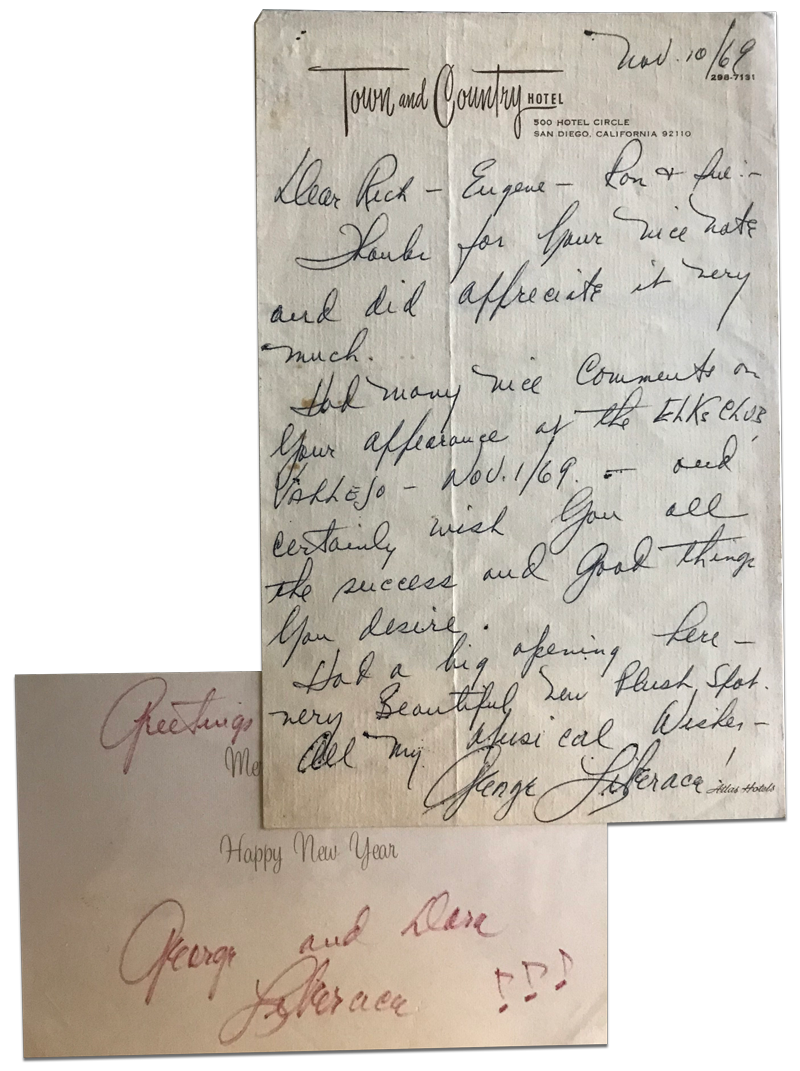 Nov. 10/69
298-7131
Town and Country HOTEL
500 HOTEL CIRCLE
SAN DIEGO, CALIFORNIA 92110
Dear Rich – Eugene – Ron + Sue:–
Thanks for Your nice note
and did appreciate it very
much.
Had many nice Comments on
Your appearance at the ELKS CLUB
VALLEJO – NOV. 1/69. – and
certainly wish You all
the success and Good things
You desire.
Had a big opening here –
very Beautiful new Plush Spot.
All my Musical Wishes –
George Liberace!
Atlas Hotels
Greetings
Me
Happy New Year
George and Dora
Liberace